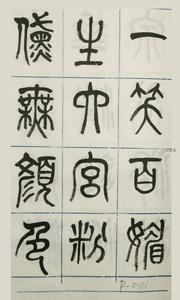 一笑百媚
生六宮粉
黛無顏色